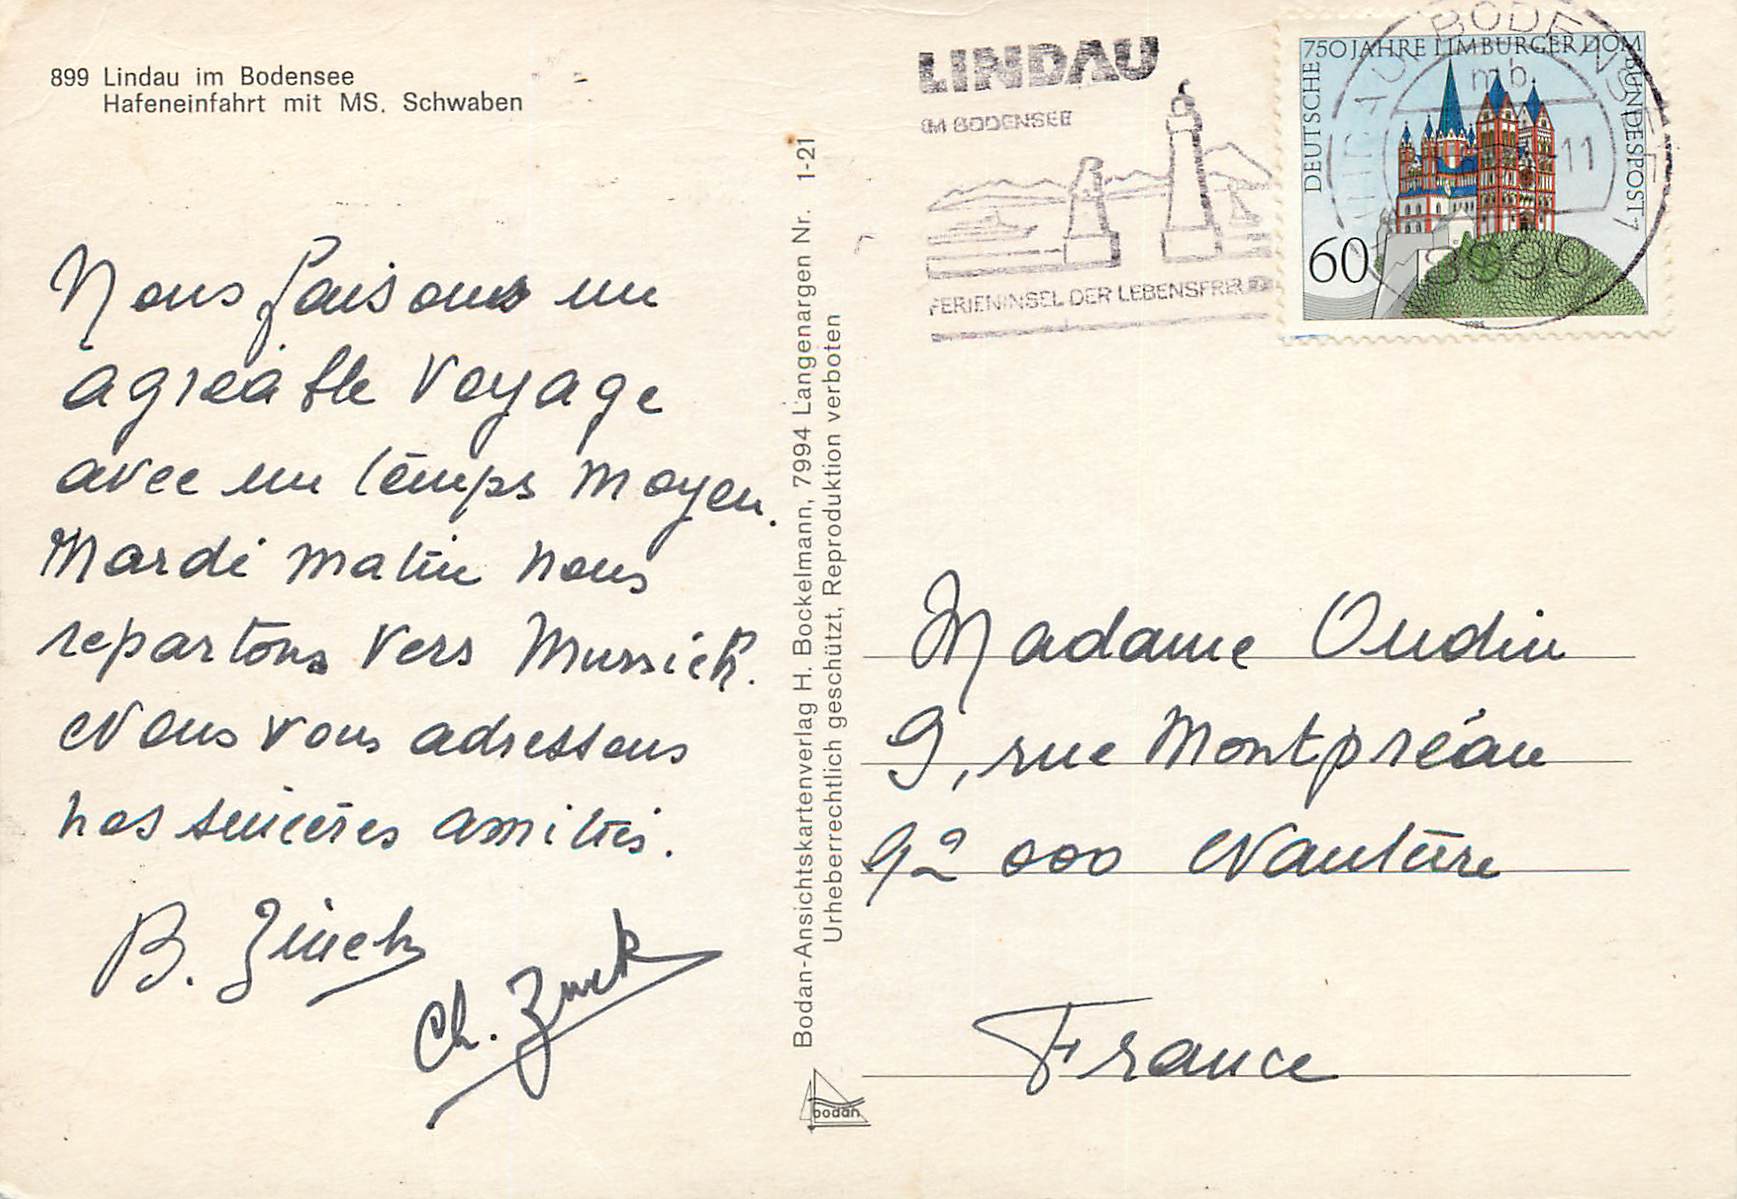 899 Lindau im Bodensee
Hafeneinfahrt mit MS. Schwaben
Nous faisons un
agréable voyage
avec un temps moyen.
Mardi matin nous
repartons vers Munich.
Nous vous adressons
nos sincères amitiés.
B. Zinck
Ch. Zinck
Bodan-Ansichtskartenverlag H. Bockelmann, 7994 Langenargen Nr. 1-21
Urheberrechtlich geschützt, Reproduktion verboten
bodan
LINDAU
IM BODENSEE
FERIENINSEL DER LEBENSFREUDE
750 JAHRE LIMBURGER DOM
DEUTSCHE BUNDESPOST
60
1985
BODENSEE
mb
11
8990
Madame Oudin
9, rue Montpréau
92 000 Nanterre
France